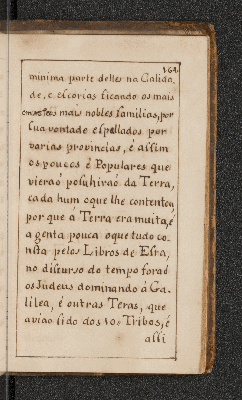 161
minima parte delles na Calida
de, e escorias ficando os mais
mais nobles familias, por
sua vontade espallados por
varias provincias, é assim
os poucos é Populares que
vieraõ posuhiraõ da Terra,
cada hum o que lhe contentou,
por que â Terra era muita, é
a genta pouca o que tudo co-
nsta pelos Libros de Esra,
no discurso do tempo foraõ
os Judeus dominando à Ga-
lilea, é outras Teras, que
aviaõ sido dos 10 Tribos, é
assi